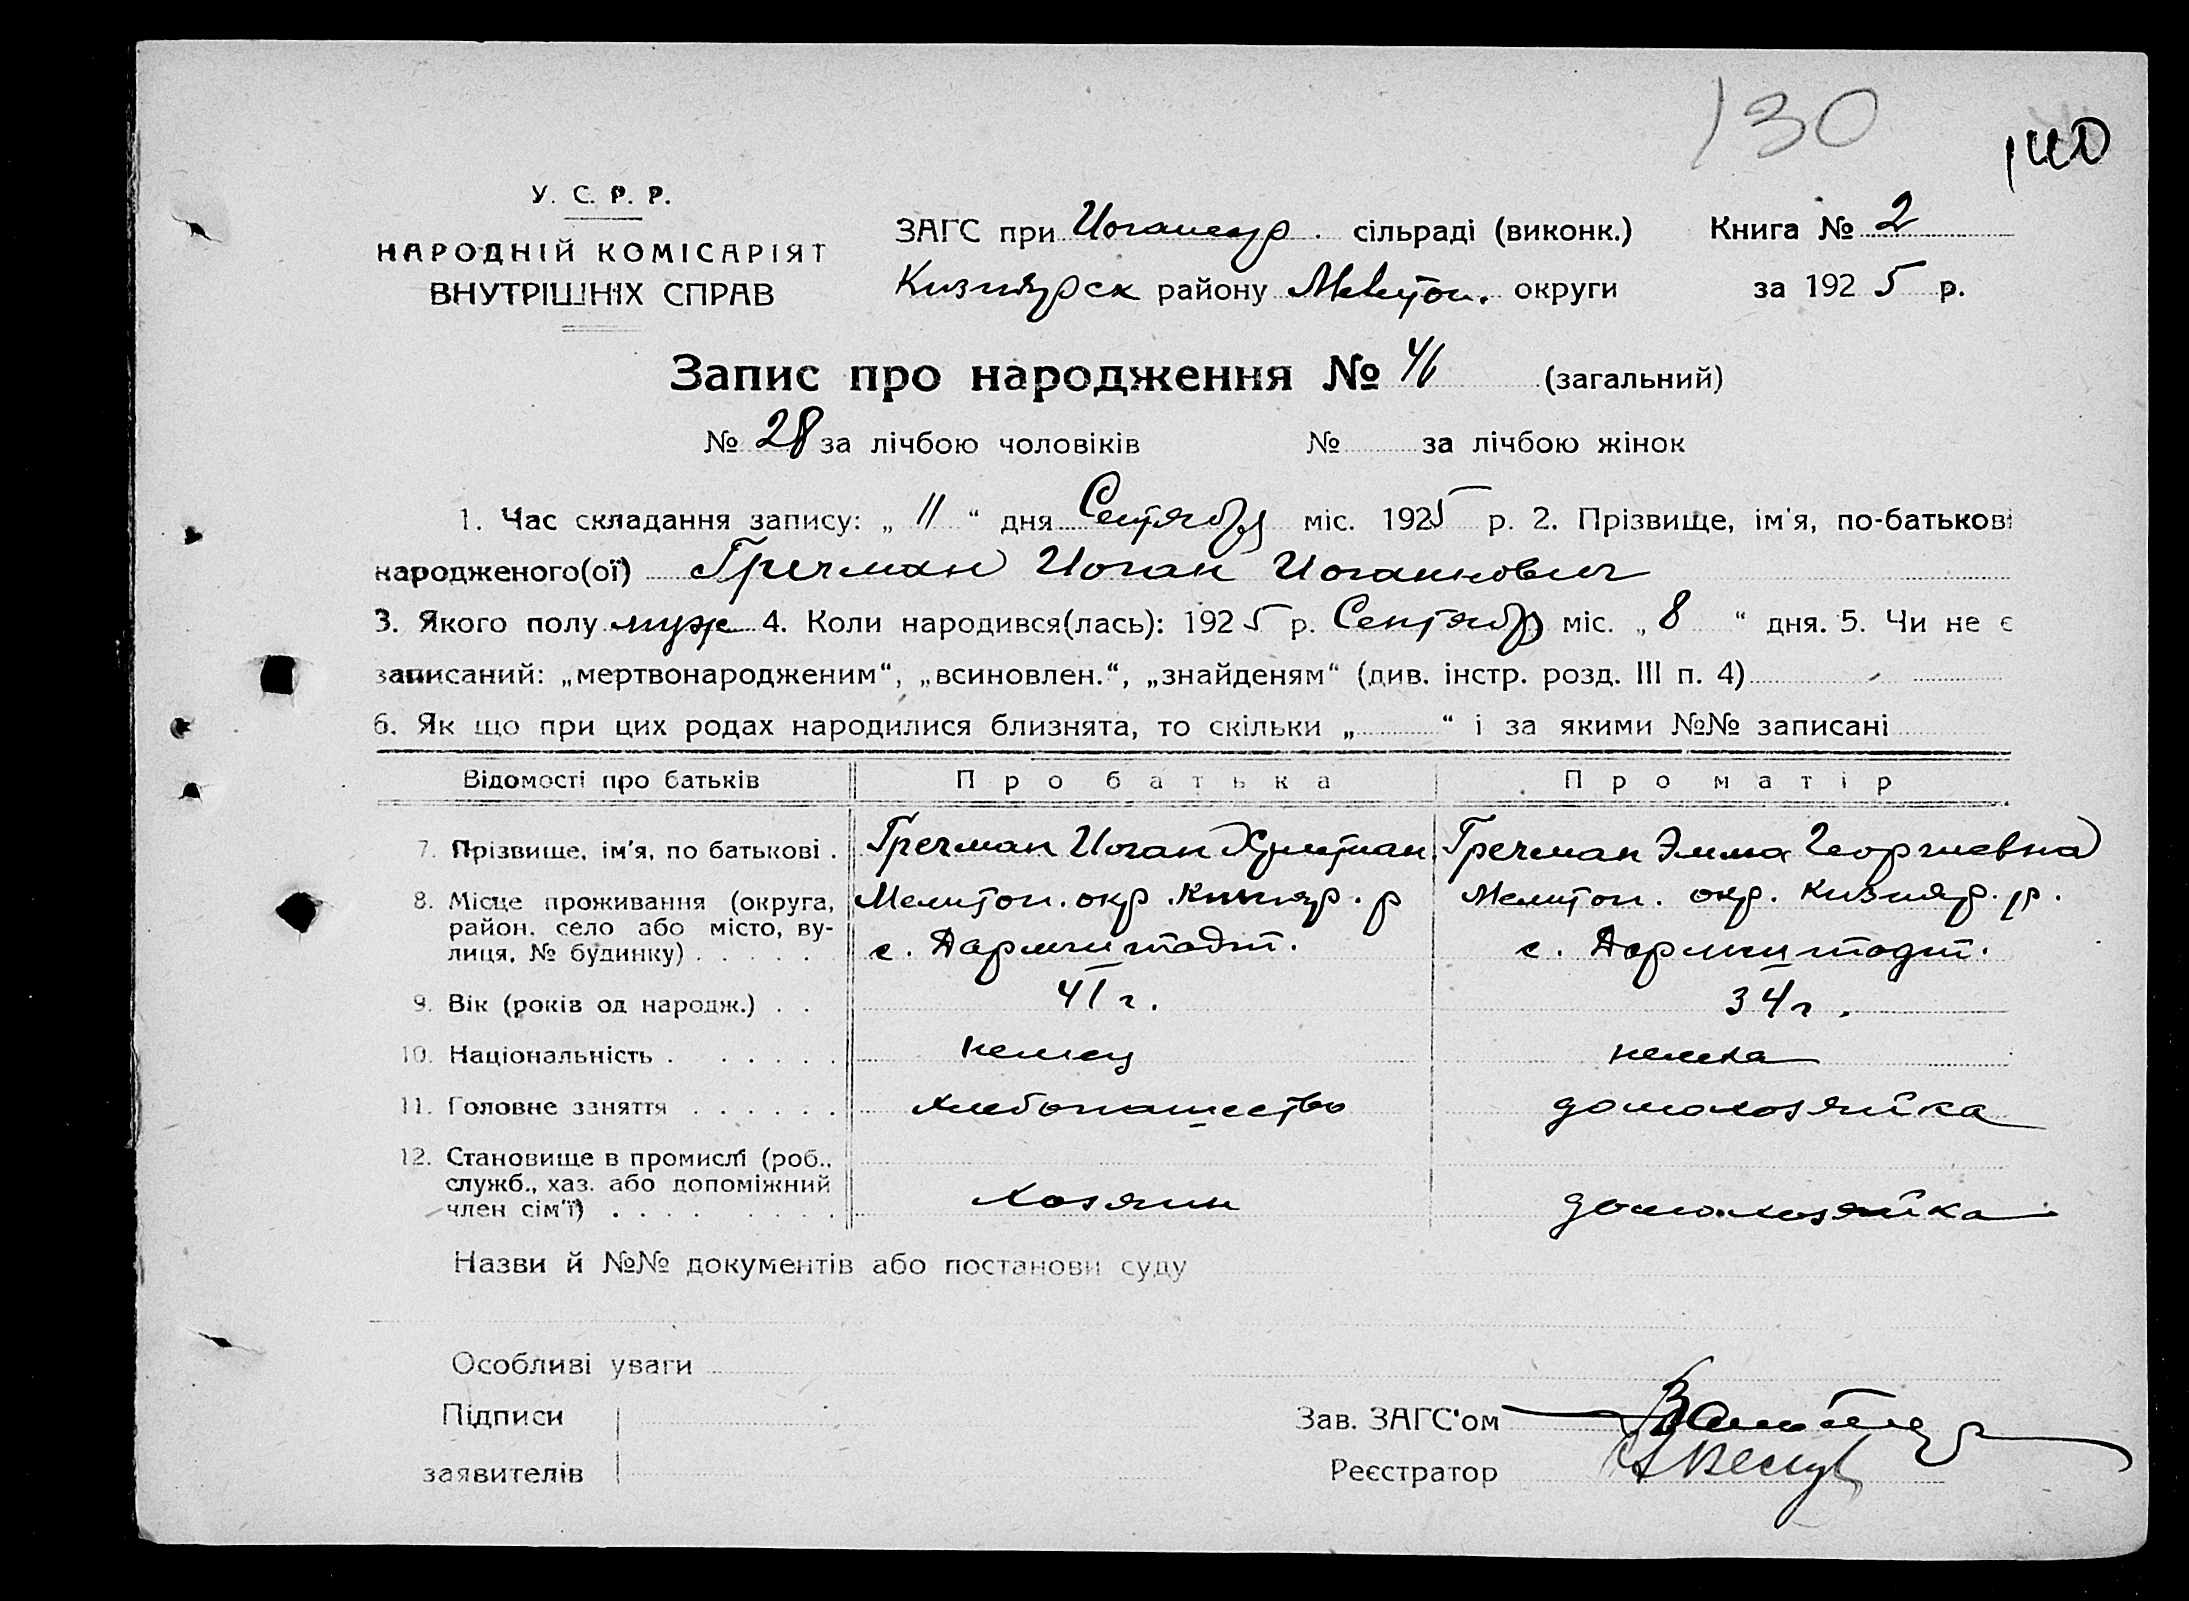 130
140
У. С. Р. Р.
НАРОДНІЙ КОМІСАРІЯТ
ВНУТРІШНІХ СПРАВ
ЗАГС при сільраді (виконк.) Книга № 2
району Мелитоп. округи за 1925 р.
Запис про народження № 46 (загальний)
№ 28 за лічбою чоловіків № за лічбою жінок
1. Час складання запису: „ 11 “ дня Сентября міс. 1925 р. 2. Прізвище, ім'я, по-батькові
народженого(ої) Гречман Иоган Иоганнович
3. Якого полу муж 4. Коли народився(лась): 1925 р. Сентябр міс. „ 8 “ дня. 5. Чи не є
записаний: „мертвонародженим“, „всиновлен.“, „знайденям“ (див. інстр. розд. III п. 4)
6. Як що при цих родах народилися близнята, то скільки „ “ і за якими №№ записані
Відомості про батьків Про батька Про матір
7. Прізвище, ім'я, по батькові . Гречман Иоган Христиан. Гречман Эмма Георгиевна
8. Місце проживання (округа, Мелитоп. окр. Кизияр. р Мелитоп. окр. Кизияр. р.
район, село або місто, ву- с. Дармштадт. с. Дармштадт.
лиця, № будинку) . . . . .
9. Вік (років од народж.) . . 41 г. 34 г.
10. Національність . . . . . . немец немка
11. Головне заняття . . . . . . хлебопашество домохозяйка
12. Становище в промислі (роб.,
служб., хаз. або допоміжний
член сім'ї) . . . . . . . . хозяин домохозяйка
Назви й №№ документів або постанови суду
Особливі уваги
Підписи
заявителів
Зав. ЗАГС'ом
Реєстратор